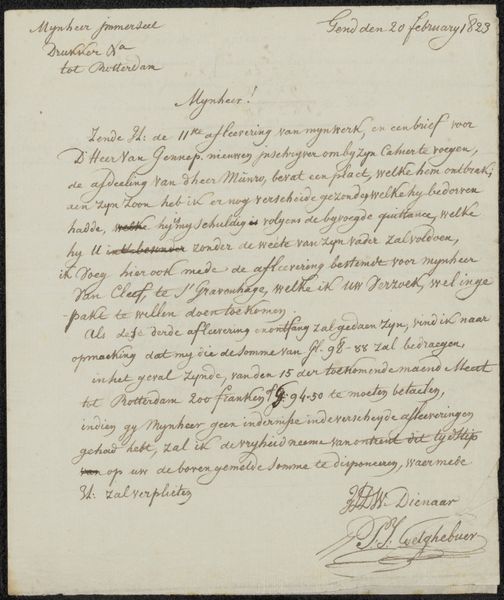 Mynheer Jmmerzeel
Drukker &a
tot Rotterdam
Gend den 20 february 1823
Mynheer!
Zende Zt: de 11de aflevering van mynwerk, en een brief voor
D'Heer Van Gennep. nieuwen jnschryver om by zyn Cahier te voegen,
de afdeeling van d'heer Munro, bevat een plact, welke hem ontbrak;
aen zyn Zoon heb ik er nog verscheide gezonden welke hy bedorven
hadde, welke hy my schuldig is volgens de bygevoegde quittance, welke
hy U zonder de weete van zyn vader zal voldoen,
ik Voeg hier ook mede de aflevering bestemt voor mynheer
Van Cleef, te S'Gravenhage, welke ik uw Verzoek, wel inge
pakt te willen doen toekomen.
Als deze derde aflevering en ontfang zal gedaen zyn, vind ik naar
opmaeking dat my die de somme van fl. 98-88 zal bedraegen,
in het geval zynde, van den 15 der toekomende maend Meert
tot Rotterdam 200 franken f 94-50 te moeten betaelen,
indien gy Mynheer geen indernisse in de verscheyde afleveringen
gehad hebt, zal ik de vryheid neeme van omtrent dit tydstip
van op uw de boven gemelde somme te disponeren, waer mede
Zt: zal verplieten
UEDW. Dienaar
P.J. Goetghebuer